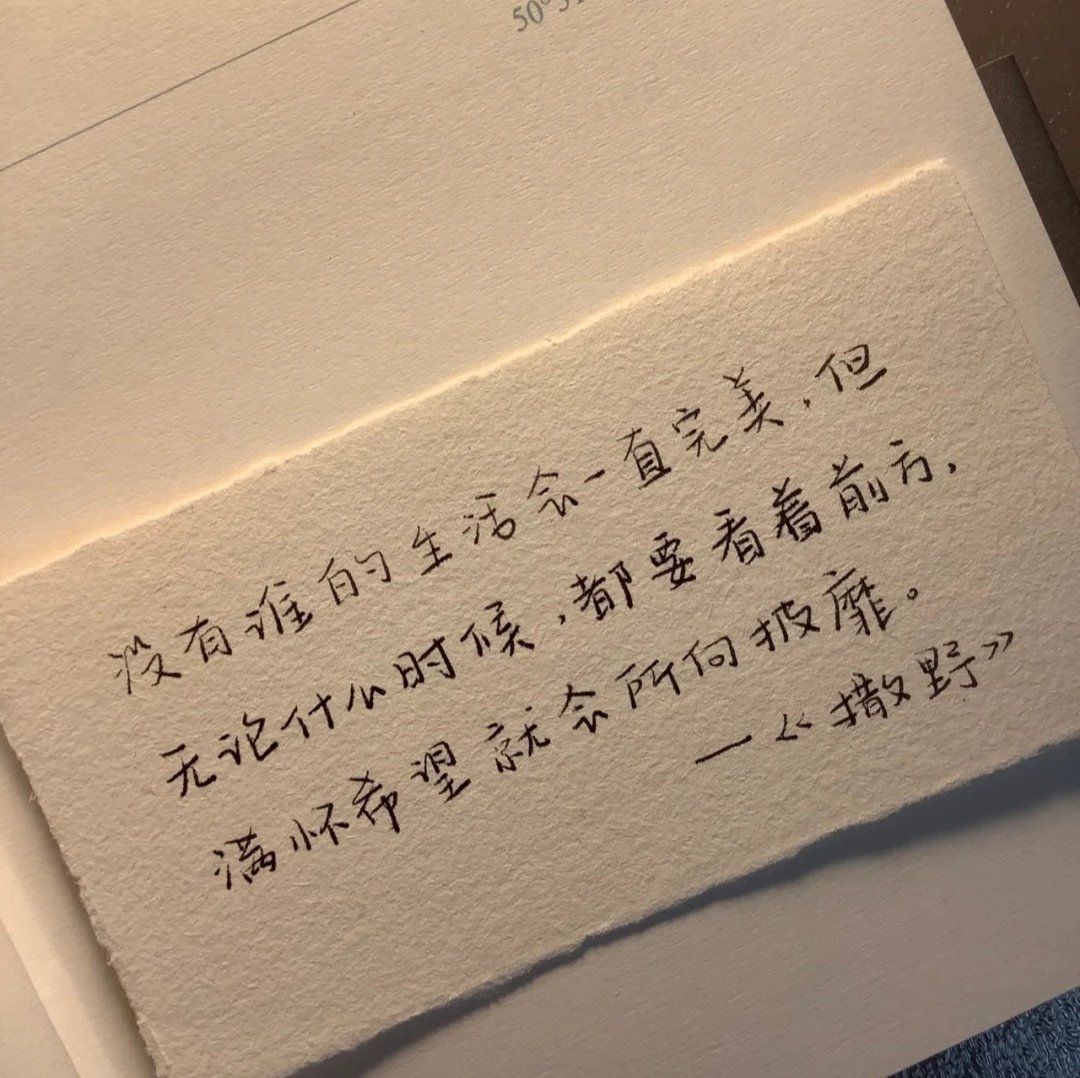 50°51
没有谁的生活会一直完美，但
无论什么时候，都要看着前方，
满怀希望就会所向披靡。
—《撒野》